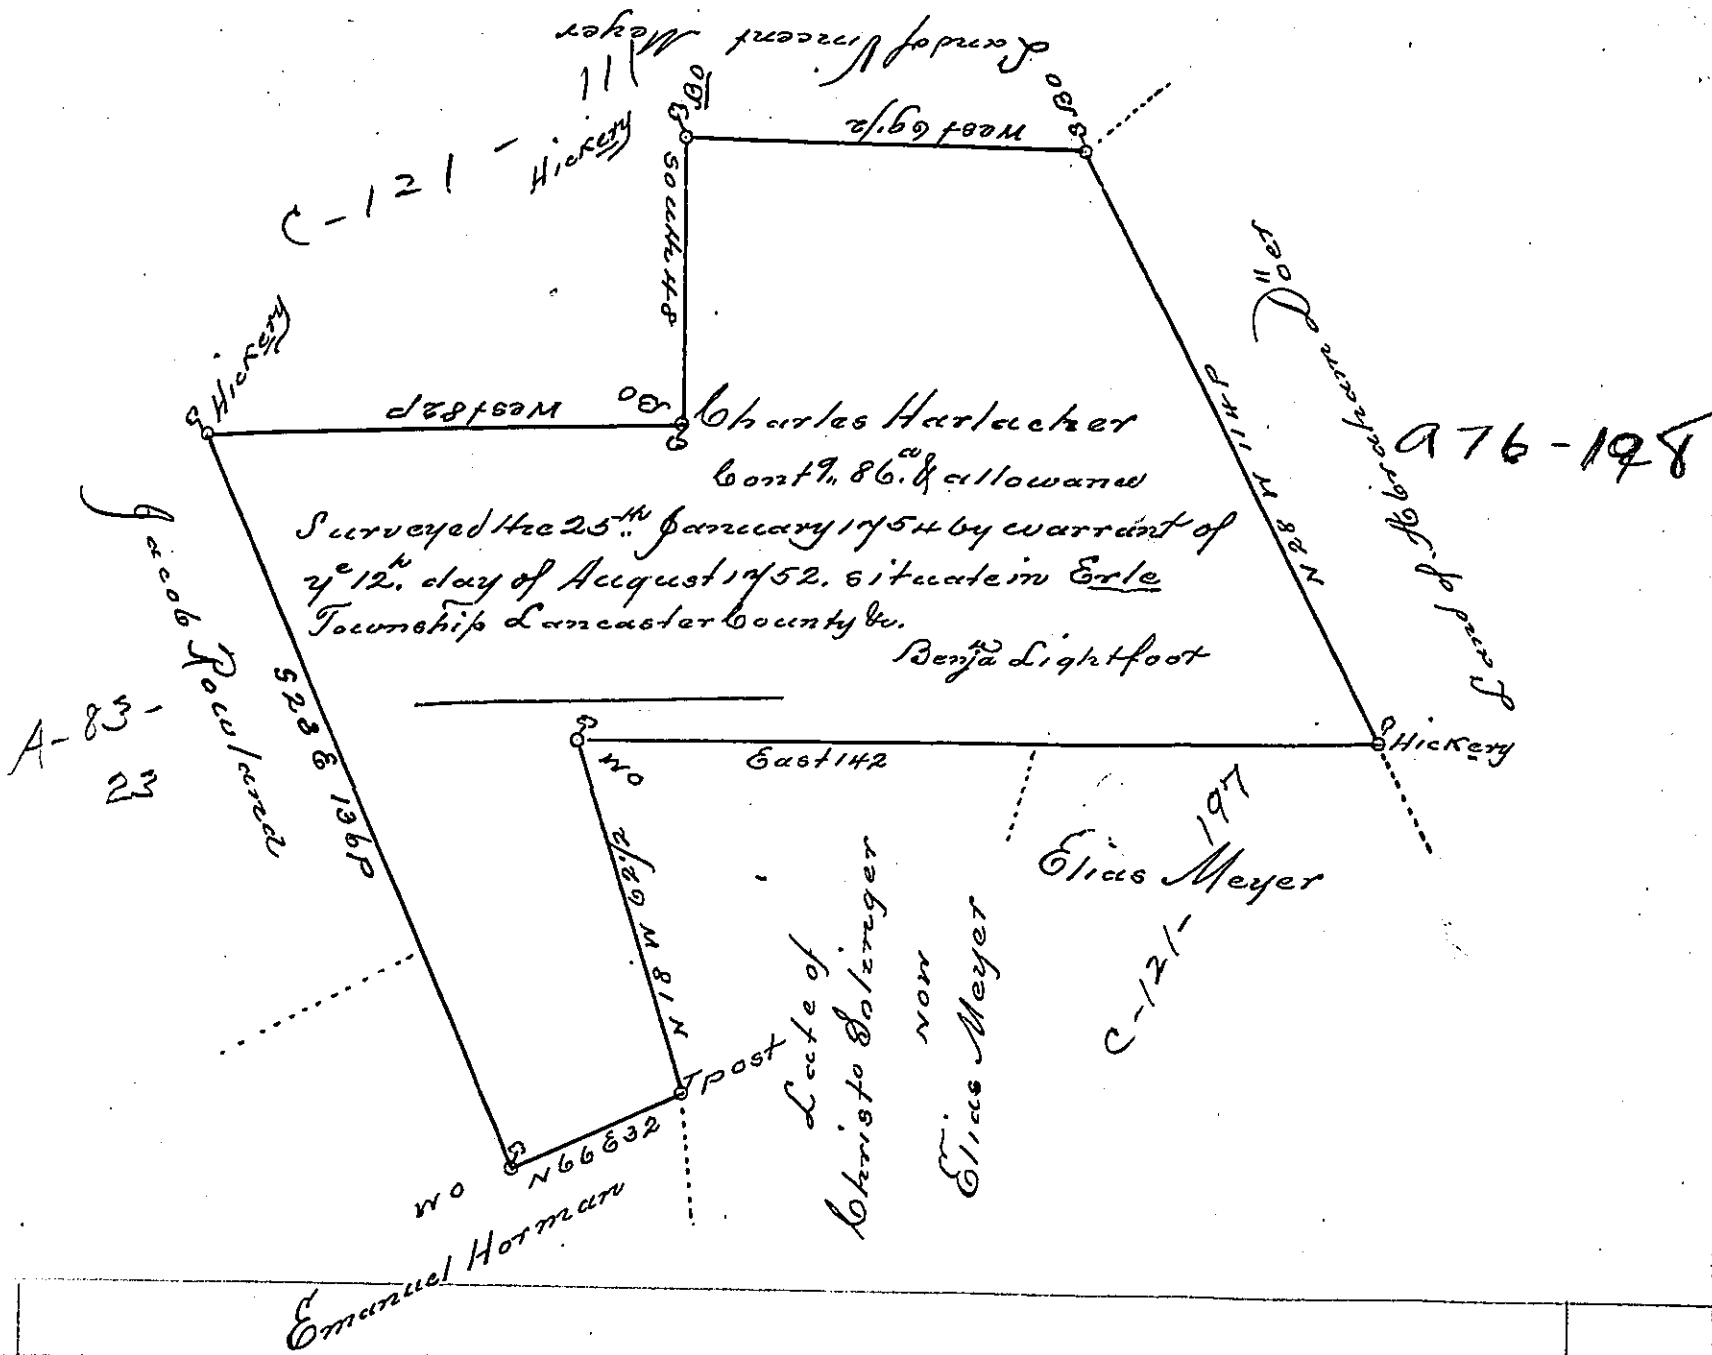 Land of Vincent Meyer
C-121-111
Hickery
BO
BO
West 69 1/2
South 48
Hickery
West 82 P
BO
Charles Harlacher
Cont.g 86.a & allowance
Surveyed the 25th January 1754 by warrant of
ye 12.h day of August 1752. situate in Erle
Township Lancaster County &c.
Benja Lightfoot
N 28 W 114 P
Land of Abraham Döer
A76-198
Jacob Rowland
A-83-
23
S 23 E 136 P
WO
East 142
Hickery
N 18 W 62 1/2
post
N 66 E 32
WO
Emanuel Horman
Late of
Christo Solinger
now
Elias Meyer
Elias Meyer
C-121-197